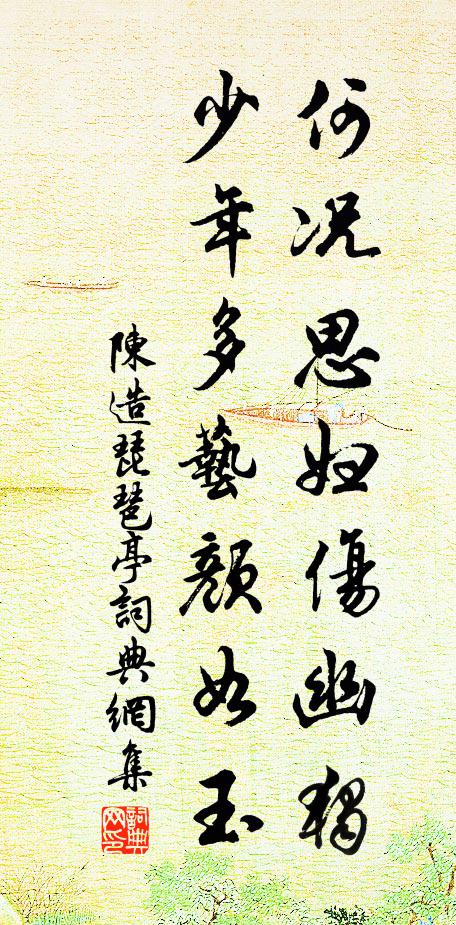 何況思婦傷幽獨
少年多藝顏如玉
陳造琵琶亭詞典網集
詞典網印